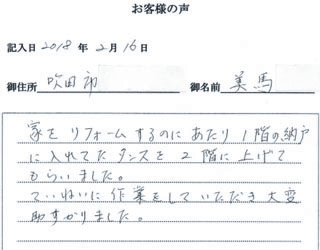 お客様の声
記入日 2018 年 2 月 16 日
御住所 吹田市 御名前 美馬
家をリフォームするのにあたり1階の納戸
に入れてたタンスを2階に上げて
もらいました。
ていねいに作業をしていただき大変
助すかりました。